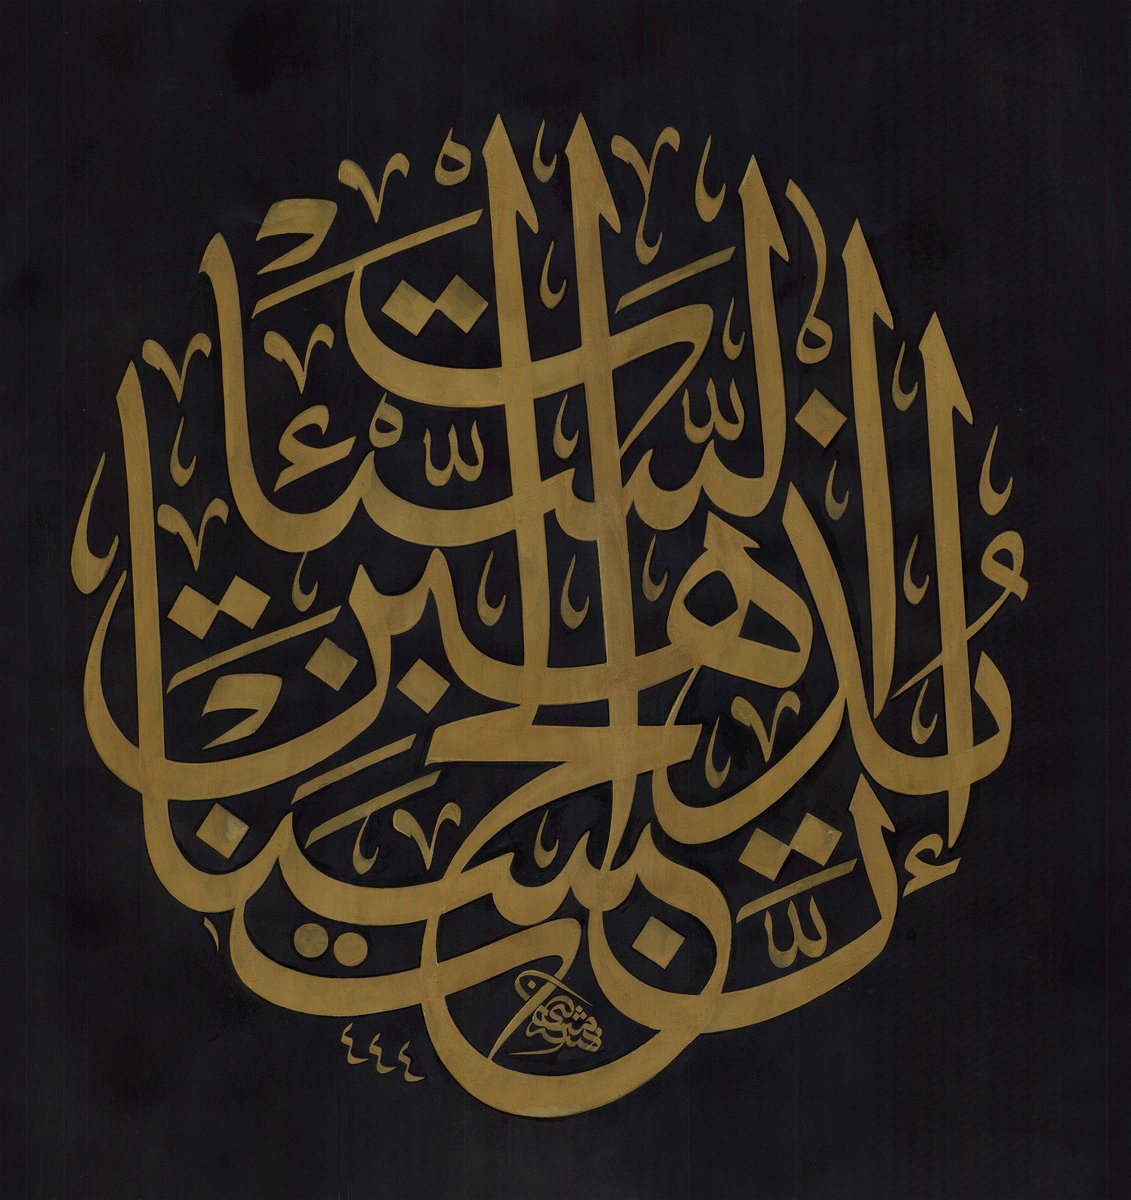 إنّ الحسنات يذهبن السيئات
١٤٤٤